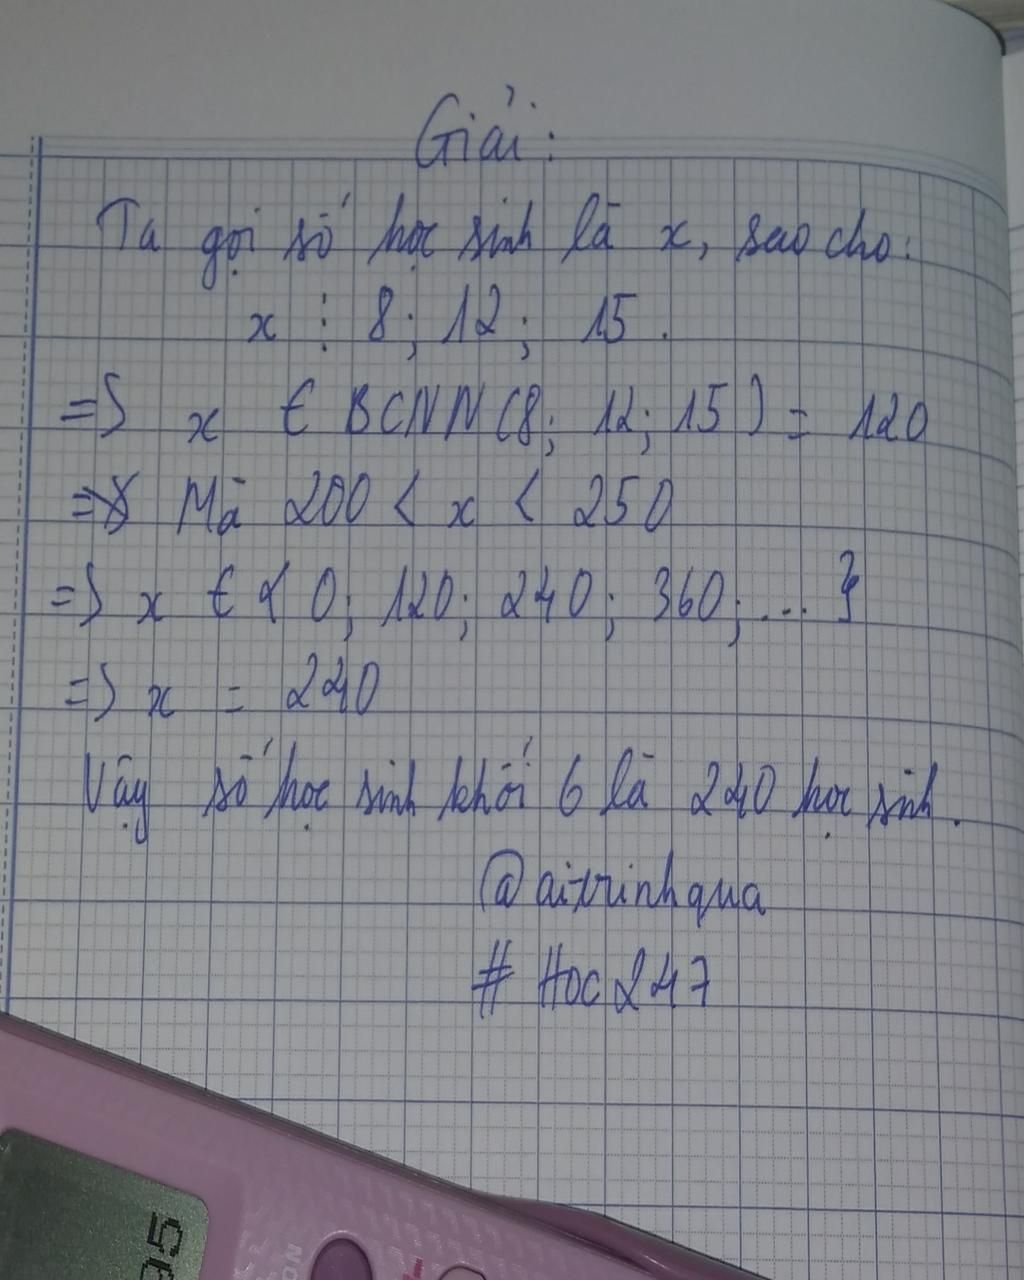 Giải:
Ta gọi số học sinh là x, sao cho:
x ⋮ 8; 12; 15.
=> x ∈ BCNN(8; 12; 15) = 120
=> Mà 200 < x < 250
=> x ∈ { 0; 120; 240; 360; ... }
=> x = 240
Vậy số học sinh khối 6 là 240 học sinh.
@aitrinhqua
# Hoc247
56
NO